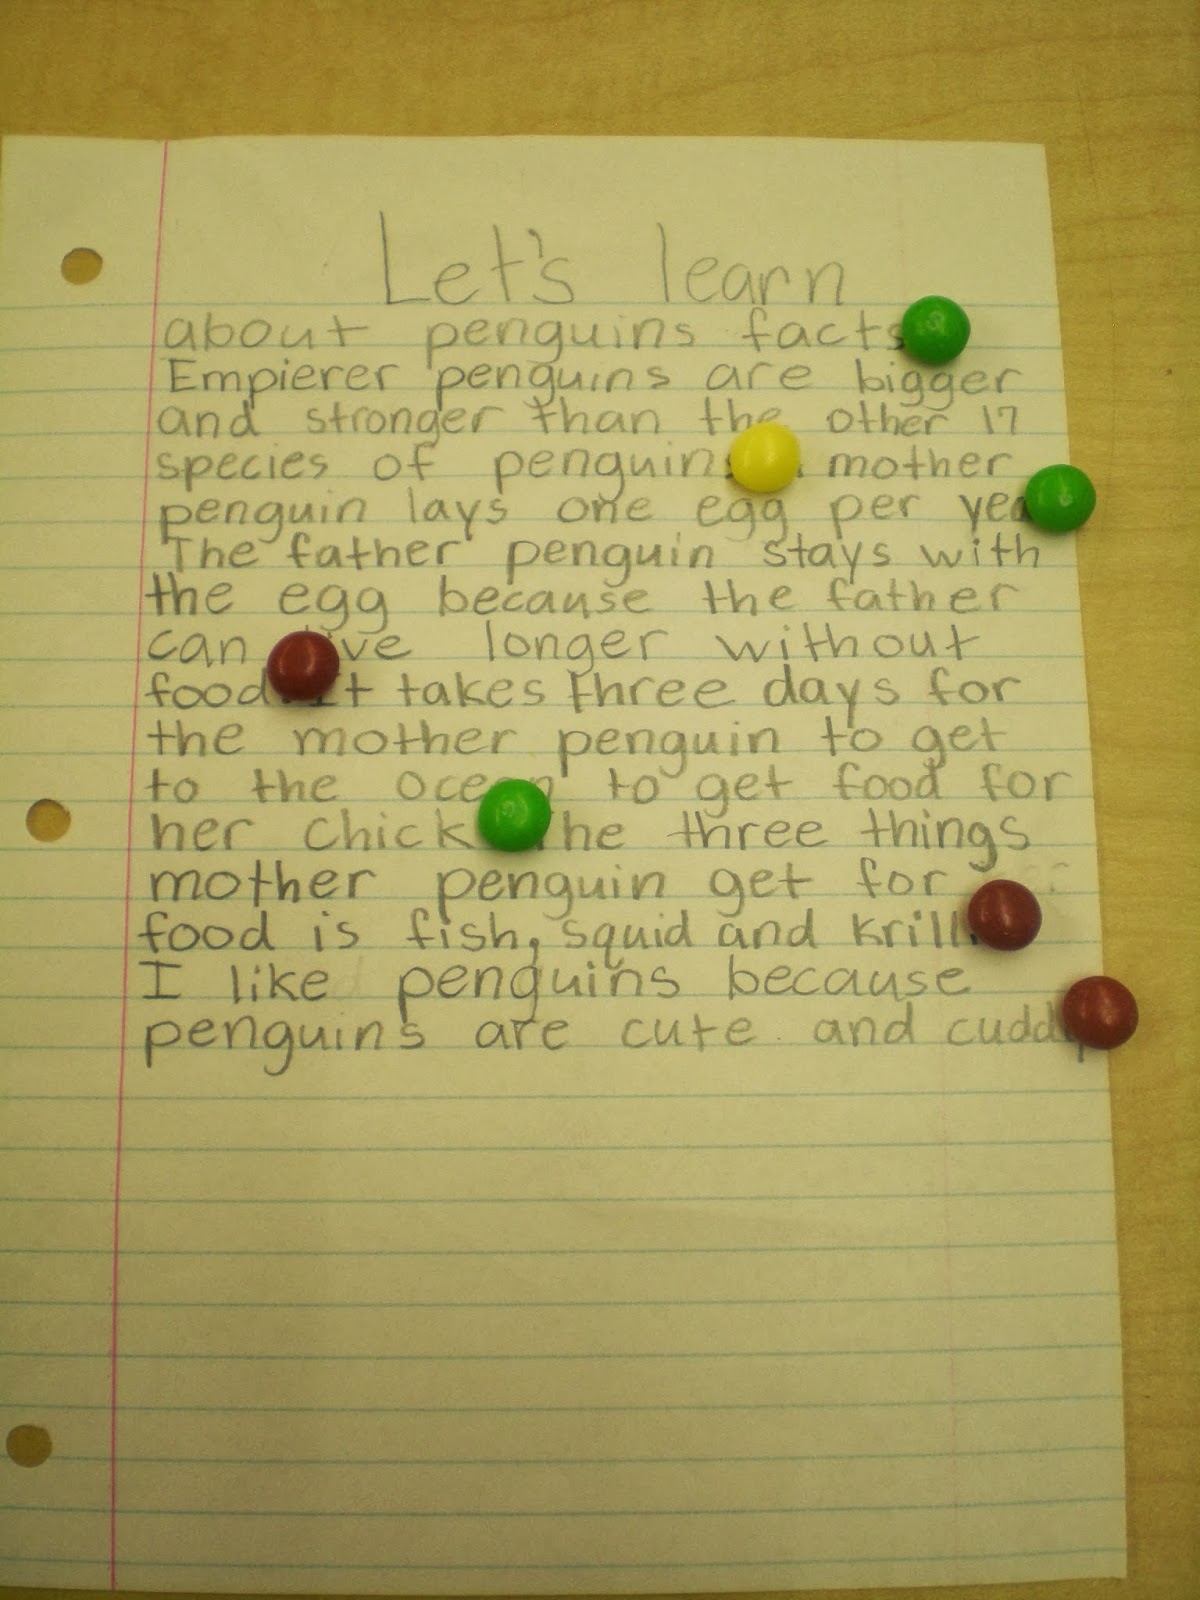 Let's learn
about penguins facts
Empierer penguins are bigger
and stronger than the other 17
species of penguins mother
penguin lays one egg per
The father penguin stays with
the egg because the father
can longer without
food. It takes three days for
the mother penguin to get
to the ocean to get food for
her chick The three things
mother penguin get for
food is fish, squid and krill.
I like penguins because
penguins are cute and